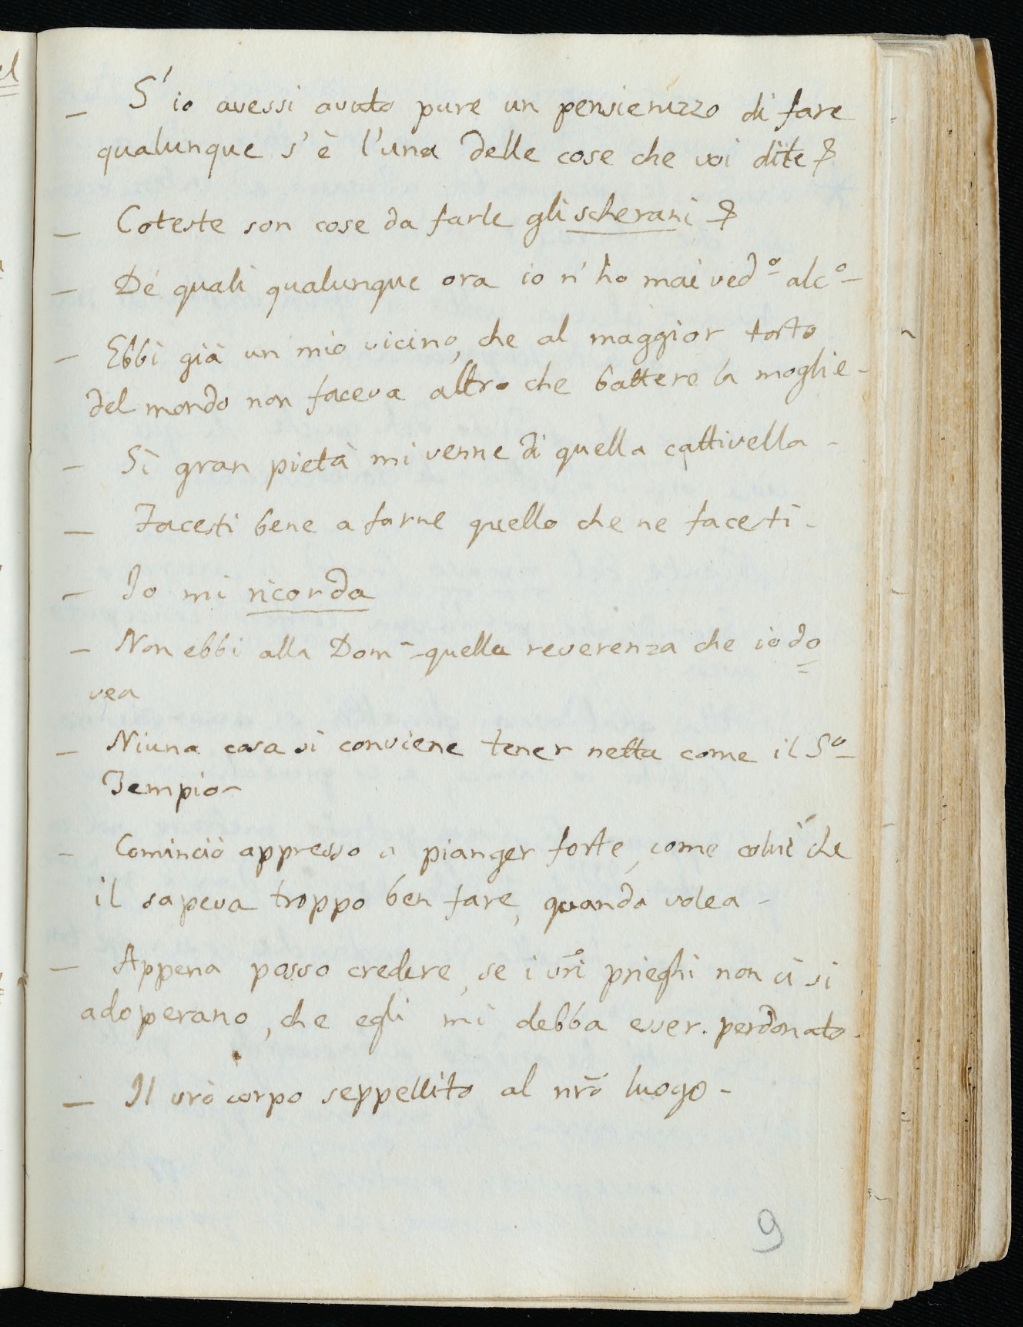 — S'io avessi avuto pure un pensieruzzo di fare
qualunque s'è l'una delle cose che voi dite?
— Coteste son cose da farle gli scherani?
— De' quali qualunque ora io n'ho mai ved.º alc.º—
— Ebbi già un mio vicino, che al maggior torto
del mondo non faceva altro che battere la moglie-
— Sì gran pietà mi venne di quella cattivella -
— Facesti bene a farne quello che ne facesti -
— Io mi ricorda
— Non ebbi alla Dom.— quella reverenza che io do
vea
— Niuna cosa si conviene tener netta come il S.º
Tempio-
— Cominciò appresso a pianger forte, come colui che
il sapeva troppo ben fare, quando volea -
— Appena posso credere, se i vr̃i prieghi non ci si
adoperano, che egli mi debba esser perdonato-
— Il vr̃o corpo seppellito al nr̃o luogo -
9